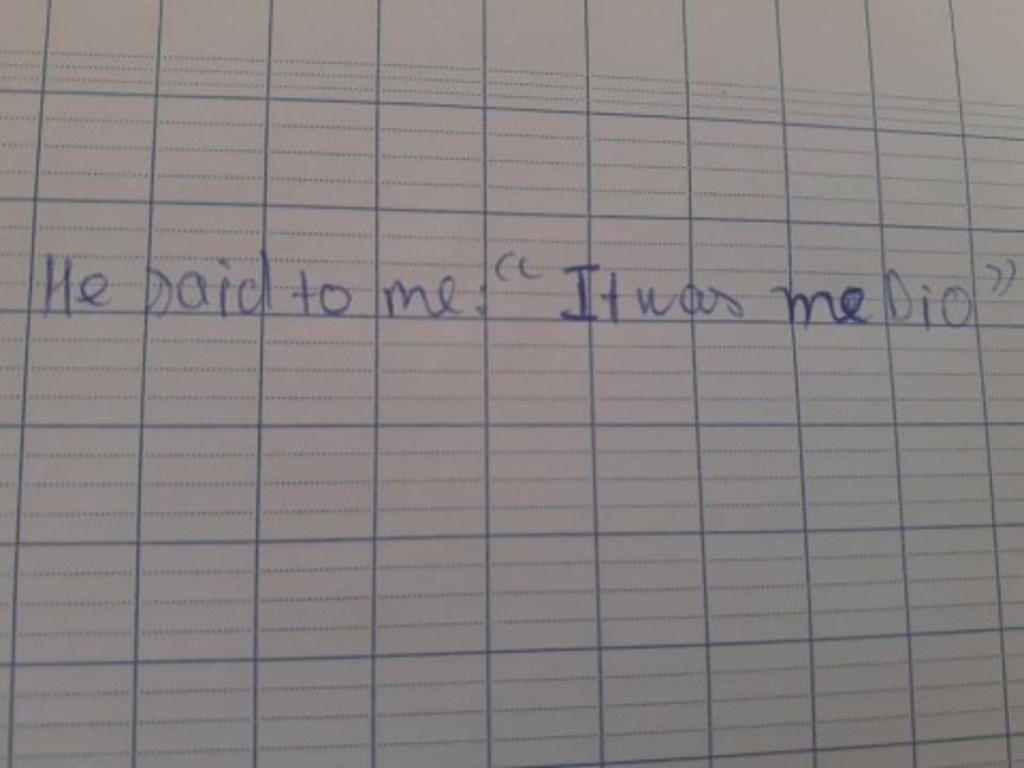 He said to me: “It was me Dio”